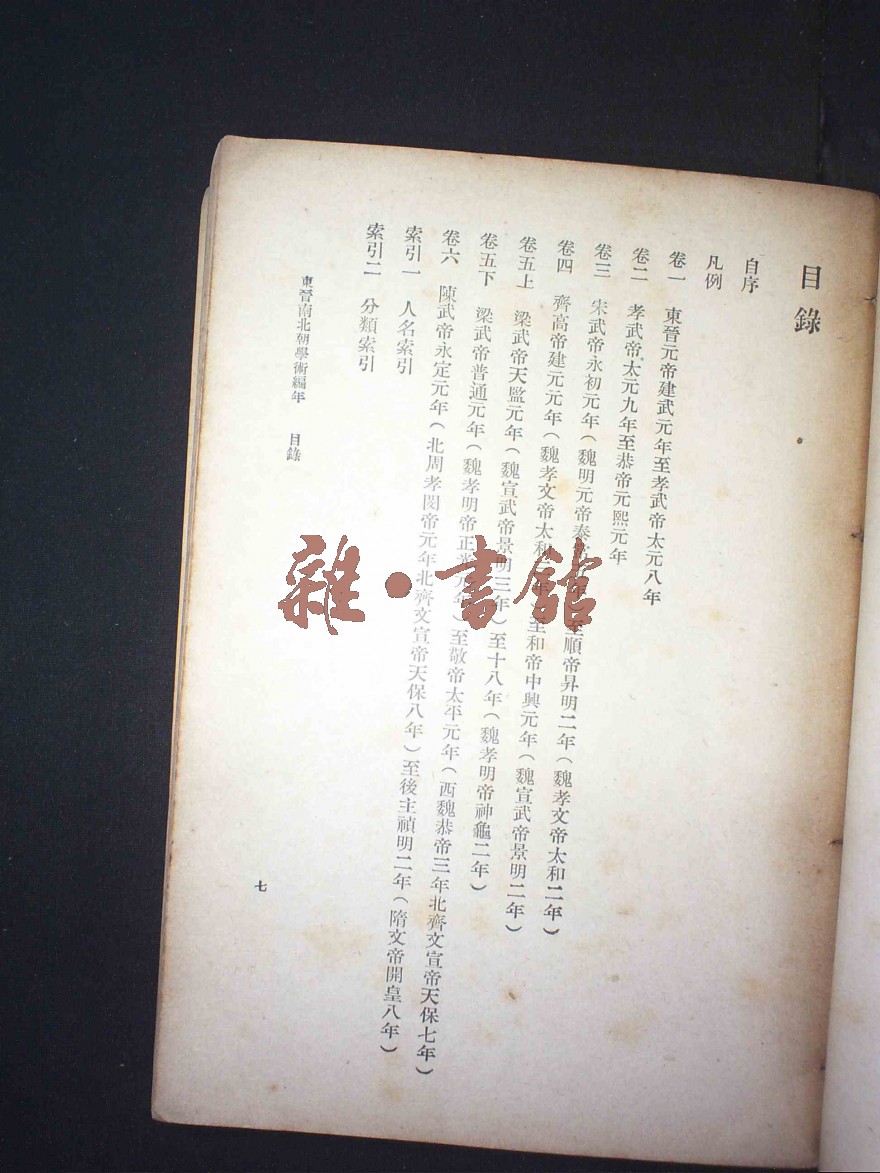 目錄
自序
凡例
卷一 東晉元帝建武元年至孝武帝太元八年
卷二 孝武帝太元九年至恭帝元熙元年
卷三 宋武帝永初元年(魏明元帝泰 年)至順帝昇明二年(魏孝文帝太和二年)
卷四 齊高帝建元元年(魏孝文帝太和 年)至和帝中興元年(魏宣武帝景明二年)
卷五上 梁武帝天監元年(魏宣武帝景明三年)至十八年(魏孝明帝神龜二年)
卷五下 梁武帝普通元年(魏孝明帝正光元年)至敬帝太平元年(西魏恭帝三年北齊文宣帝天保七年)
卷六 陳武帝永定元年(北周孝閔帝元年北齊文宣帝天保八年)至後主禎明二年(隋文帝開皇八年)
索引一 人名索引
索引二 分類索引
東晉南北朝學術編年 目錄
七
雜·書館